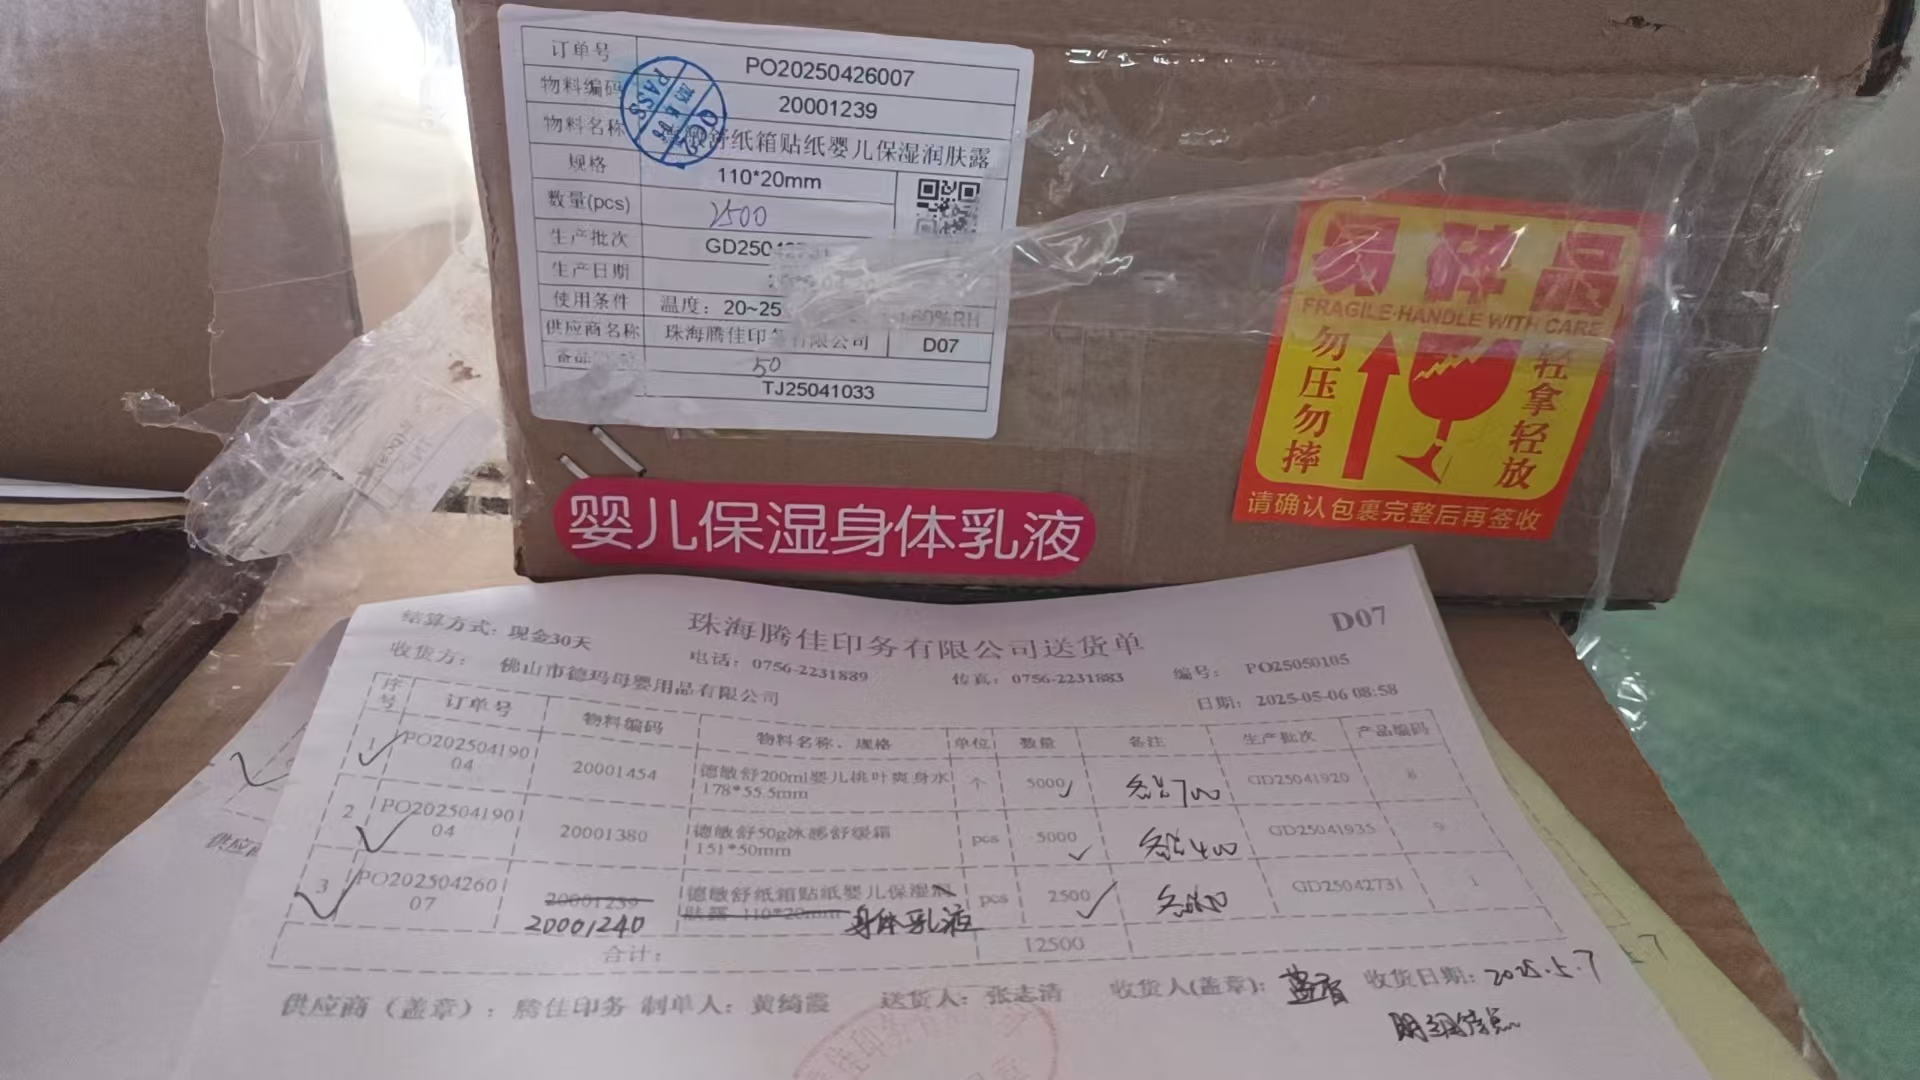 订单号 PO20250426007
物料编码 20001239
物料名称 敏舒纸箱贴纸婴儿保湿润肤露
规格 110*20mm
数量(pcs) 2500
生产批次 GD250427
生产日期
使用条件 温度：20~25 60%RH
供应商名称 珠海腾佳印务有限公司 D07
50
TJ25041033
PASS
易碎品
FRAGILE-HANDLE WITH CARE
勿压勿摔
轻拿轻放
请确认包裹完整后再签收
婴儿保湿身体乳液
珠海腾佳印务有限公司送货单 D07
结算方式：现金30天
电话：0756-2231889 传真：0756-2231883 编号：PO25050105
收货方：佛山市德玛母婴用品有限公司
日期：2025-05-06 08:58
序号 订单号 物料编码 物料名称、规格 单位 数量 备注 生产批次 产品编码
1 PO20250419004 20001454 德敏舒200ml婴儿桃叶爽身水 178*55.5mm 个 5000 700 GD25041920 8
2 PO20250419004 20001380 德敏舒50g冰感舒缓霜 151*50mm pcs 5000 400 GD25041935 9
3 PO20250426007 20001239 德敏舒纸箱贴纸婴儿保湿润肤露 110*20mm pcs 2500 GD25042731 1
20001240 身体乳液
合计： 12500
供应商（盖章）：腾佳印务 制单人：黄绮霞 送货人：张志清 收货人(盖章)： 收货日期：2025.5.7
供应商